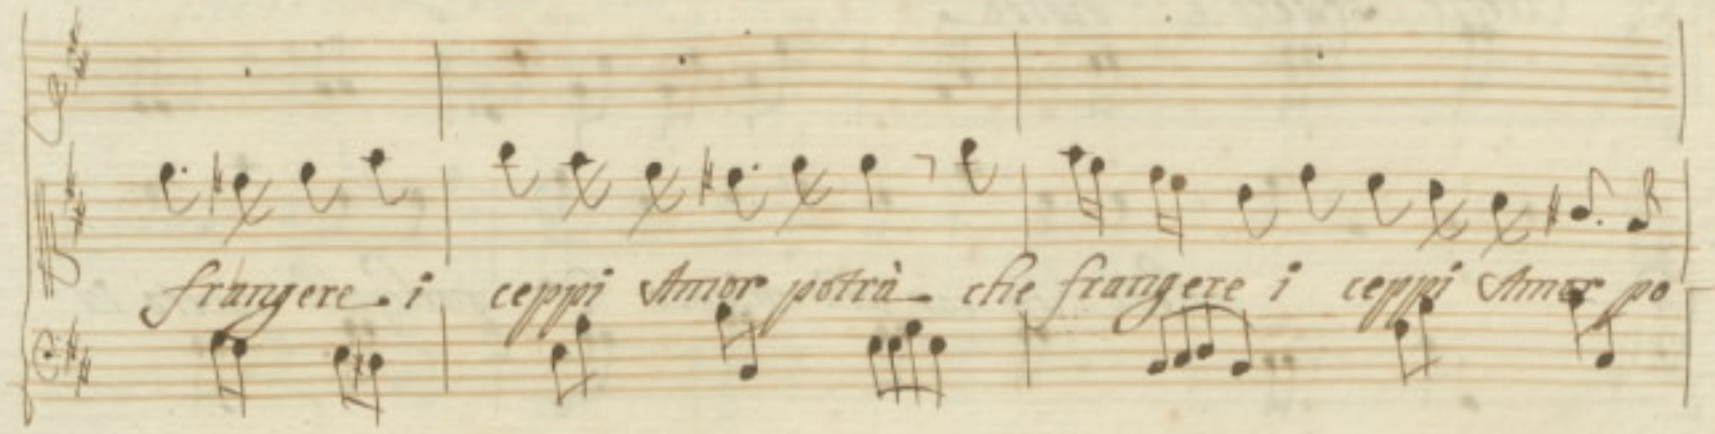 frangere i ceppi Amor potrà che frangere i ceppi Amor po